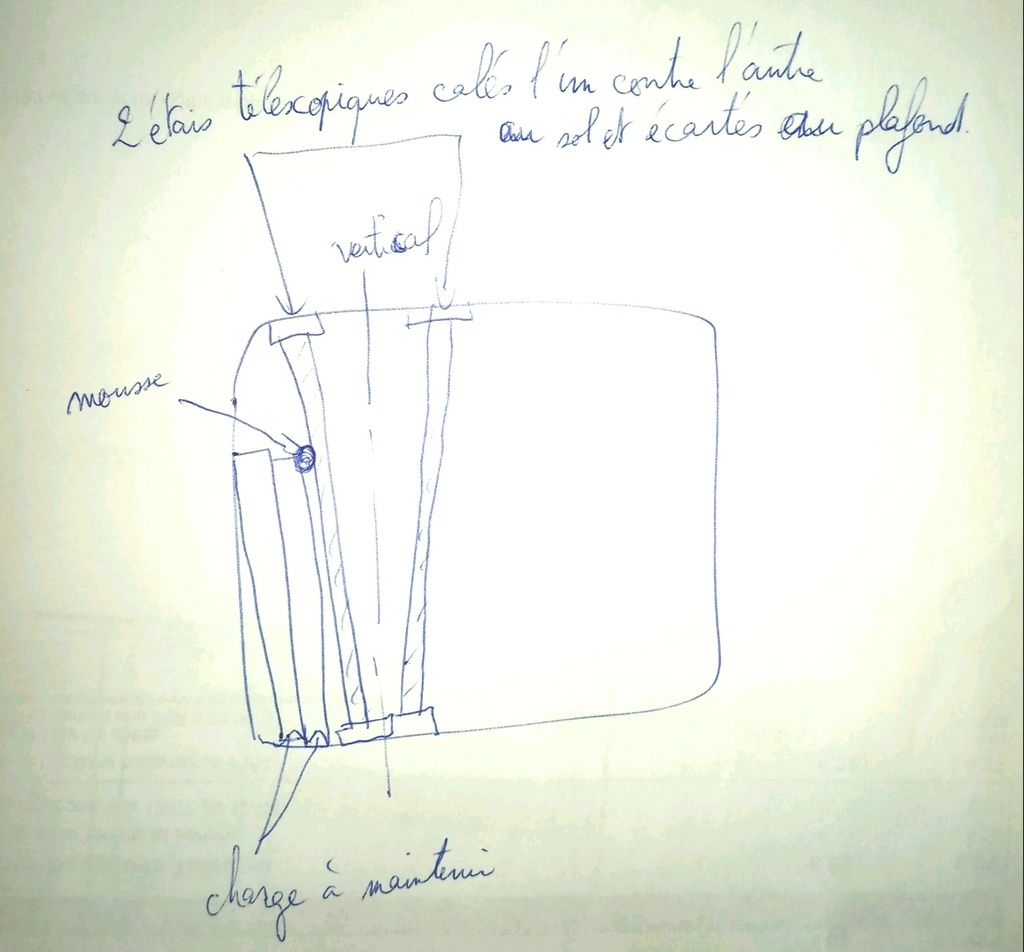 2 étais télescopiques calés l'un contre l'autre
au sol et écartés au plafond.
vertical
mousse
charge à maintenir